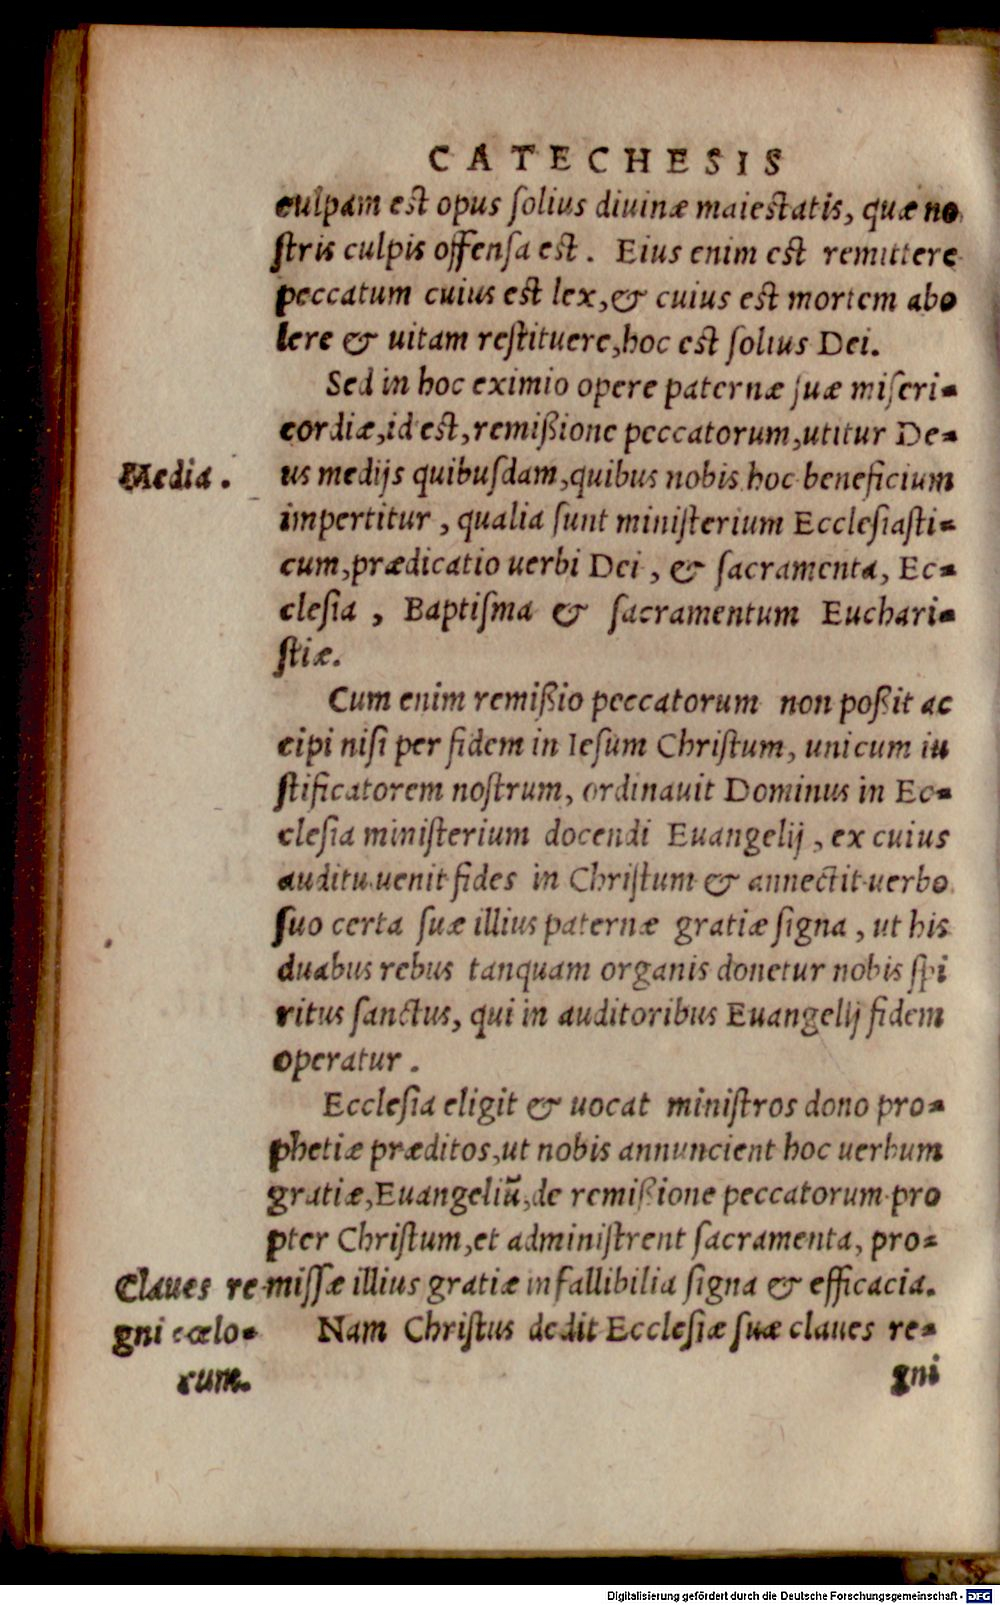 CATECHESIS
culpam est opus ſolius diuinæ maiestatis, quæ no
ſtris culpis offenſa est. Eius enim est remittere
peccatum cuius est lex, & cuius est mortem abo
lere & uitam reſtituere, hoc est ſolius Dei.
Sed in hoc eximio opere paternæ ſuæ miſeri-
cordiæ, id est, remißione peccatorum, utitur De-
Media.
us medijs quibuſdam, quibus nobis hoc beneficium
impertitur, qualia ſunt miniſterium Eccleſiaſti-
cum, prædicatio uerbi Dei, & ſacramenta, Ec-
cleſia, Baptiſma & ſacramentum Euchari-
ſtiæ.
Cum enim remißio peccatorum non poßit ac
cipi niſi per fidem in Ieſum Chriſtum, unicum iu
ſtificatorem noſtrum, ordinauit Dominus in Ec-
cleſia miniſterium docendi Euangelij, ex cuius
auditu uenit fides in Chriſtum & annectit uerbo
ſuo certa ſuæ illius paternæ gratiæ ſigna, ut his
duabus rebus tanquam organis donetur nobis ſpi
ritus ſanctus, qui in auditoribus Euangelij fidem
operatur.
Eccleſia eligit & uocat miniſtros dono pro-
phetiæ præditos, ut nobis annuncient hoc uerbum
gratiæ, Euangeliū, de remißione peccatorum pro
pter Chriſtum, et adminiſtrent ſacramenta, pro-
miſſæ illius gratiæ infallibilia ſigna & efficacia.
Claues re-
gni cœlo-
rum.
Nam Chriſtus dedit Eccleſiæ ſuæ claues re-
gni
Digitalisierung gefördert durch die Deutsche Forschungsgemeinschaft - DFG